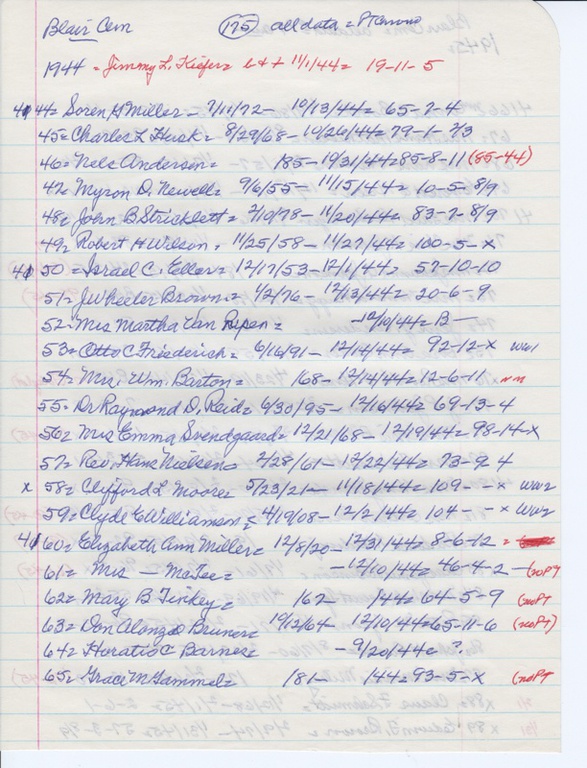 Blair Cem (175) all data =
1944 = Jimmy L. Kiefer = b++ 11/1/44 = 19-11-5
4144 = Soren H Miller = 7/11/72 - 10/13/44 = 65-7-4
45 = Charles L Husk = 8/29/68 - 10/26/44 = 79-1-7/3
46 = Nels Anderson = 185 - 10/31/44 = 85-8-11 (85-44)
47 = Myron D. Newell = 9/6/55 - 11/15/44 = 10-5-8/9
48 = John B Stricklett = 2/10/78 - 11/20/44 = 83-7-8/9
49 = Robert H Wilson = 11/25/58 - 11/27/44 = 100-5-x
41 50 = Israel C. Eller = 12/17/53 - 12/1/44 = 57-10-10
51 = J Wheeler Brown = 1/2/76 - 12/13/44 = 20-6-9
52 = Mrs Martha Van Ripen = - 12/10/44 = B -
53 = Otto C Friederich = 6/16/91 - 12/14/44 = 92-12-x WW1
54 = Mrs. Wm. Barton = 168 - 12/14/44 = 12-6-11 nm
55 = Dr Raymond D. Reid = 4/30/95 - 12/16/44 = 69-13-4
56 = Mrs Emma Svendgaard = 12/21/68 - 12/19/44 = 98-14-x
57 = Rev. Hans Nielsen = 2/28/61 - 12/22/44 = 73-9-4
x 58 = Clifford L Moore = 5/23/21 - 11/18/44 = 109 - - x WW2
59 = Clyde E Williamson = 4/19/08 - 12/2/44 = 104 - - x WW2
41 60 = Elizabeth Ann Miller = 12/8/20 - 12/31/44 = 8-6-12 =
61 = Mrs - McFee = - 12/10/44 = 46-4-2 - (noPT
62 = Mary B Tinkey = 167 - 144 = 64-5-9 (noPT
63 = Don Alonzo Bruner = 10/12/64 - 12/10/44 = 65-11-6 (noPT)
64 = Horatio C Barnes = - 9/20/44 = ?
65 = Grace M Gammel = 181 - 144 = 93-5-x (noPT